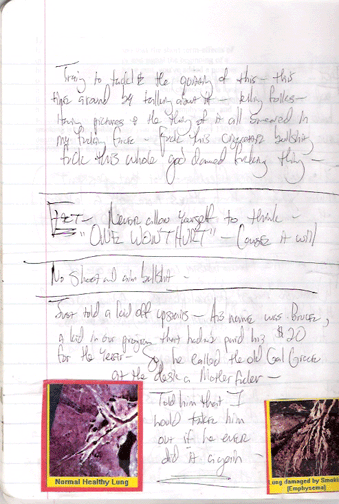 Trying to tackle the quitting of this – this
time around by talking about it – telling folks –
Having pictures & the thing of it all smeared in
my fucking face – Fuck this cigarette bullshit,
fuck this whole god damned fucking thing –
FACT – Never allow yourself to think –
"ONE WON'T HURT" – Cause it will
No bullshit –
Just told a kid off upstairs – His name was Bruce,
a kid in our program that hadn't paid his $20
for the year – he called the old Gal Greek
at the desk a Mother Fucker –
Told him that I
would take him
out if he ever
did it again –
Normal Healthy Lung
Lung damaged by Smoking
[Emphysema]